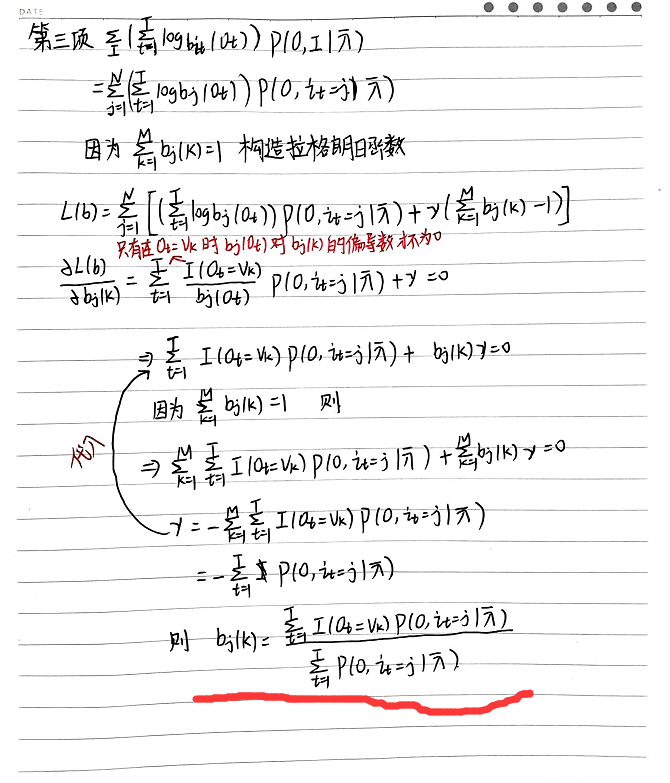 DATE
第三项 ∑_I (∑_{t=1}^T log b_{it}(O_t)) P(O,I|λ̄)
= ∑_{j=1}^N (∑_{t=1}^T log b_j(O_t)) P(O, i_t=j|λ̄)
因为 ∑_{k=1}^M b_j(k)=1 构造拉格朗日函数
L(b) = ∑_{j=1}^N [(∑_{t=1}^T log b_j(O_t)) P(O, i_t=j|λ̄) + γ(∑_{k=1}^M b_j(k) -1)]
只有在 O_t=V_k 时 b_j(O_t) 对 b_j(k) 的偏导数才不为0
∂L(b)/∂b_j(k) = ∑_{t=1}^T I(O_t=V_k)/b_j(O_t) P(O, i_t=j|λ̄) + γ = 0
⇒ ∑_{t=1}^T I(O_t=V_k) P(O, i_t=j|λ̄) + b_j(k) γ=0
因为 ∑_{k=1}^M b_j(k) =1 则
代入
⇒ ∑_{k=1}^M ∑_{t=1}^T I(O_t=V_k) P(O, i_t=j|λ̄) + ∑_{k=1}^M b_j(k) γ=0
γ = -∑_{k=1}^M ∑_{t=1}^T I(O_t=V_k) P(O, i_t=j|λ̄)
= -∑_{t=1}^T P(O, i_t=j|λ̄)
则 b_j(k) = ∑_{t=1}^T I(O_t=V_k) P(O, i_t=j|λ̄)
∑_{t=1}^T P(O, i_t=j|λ̄)